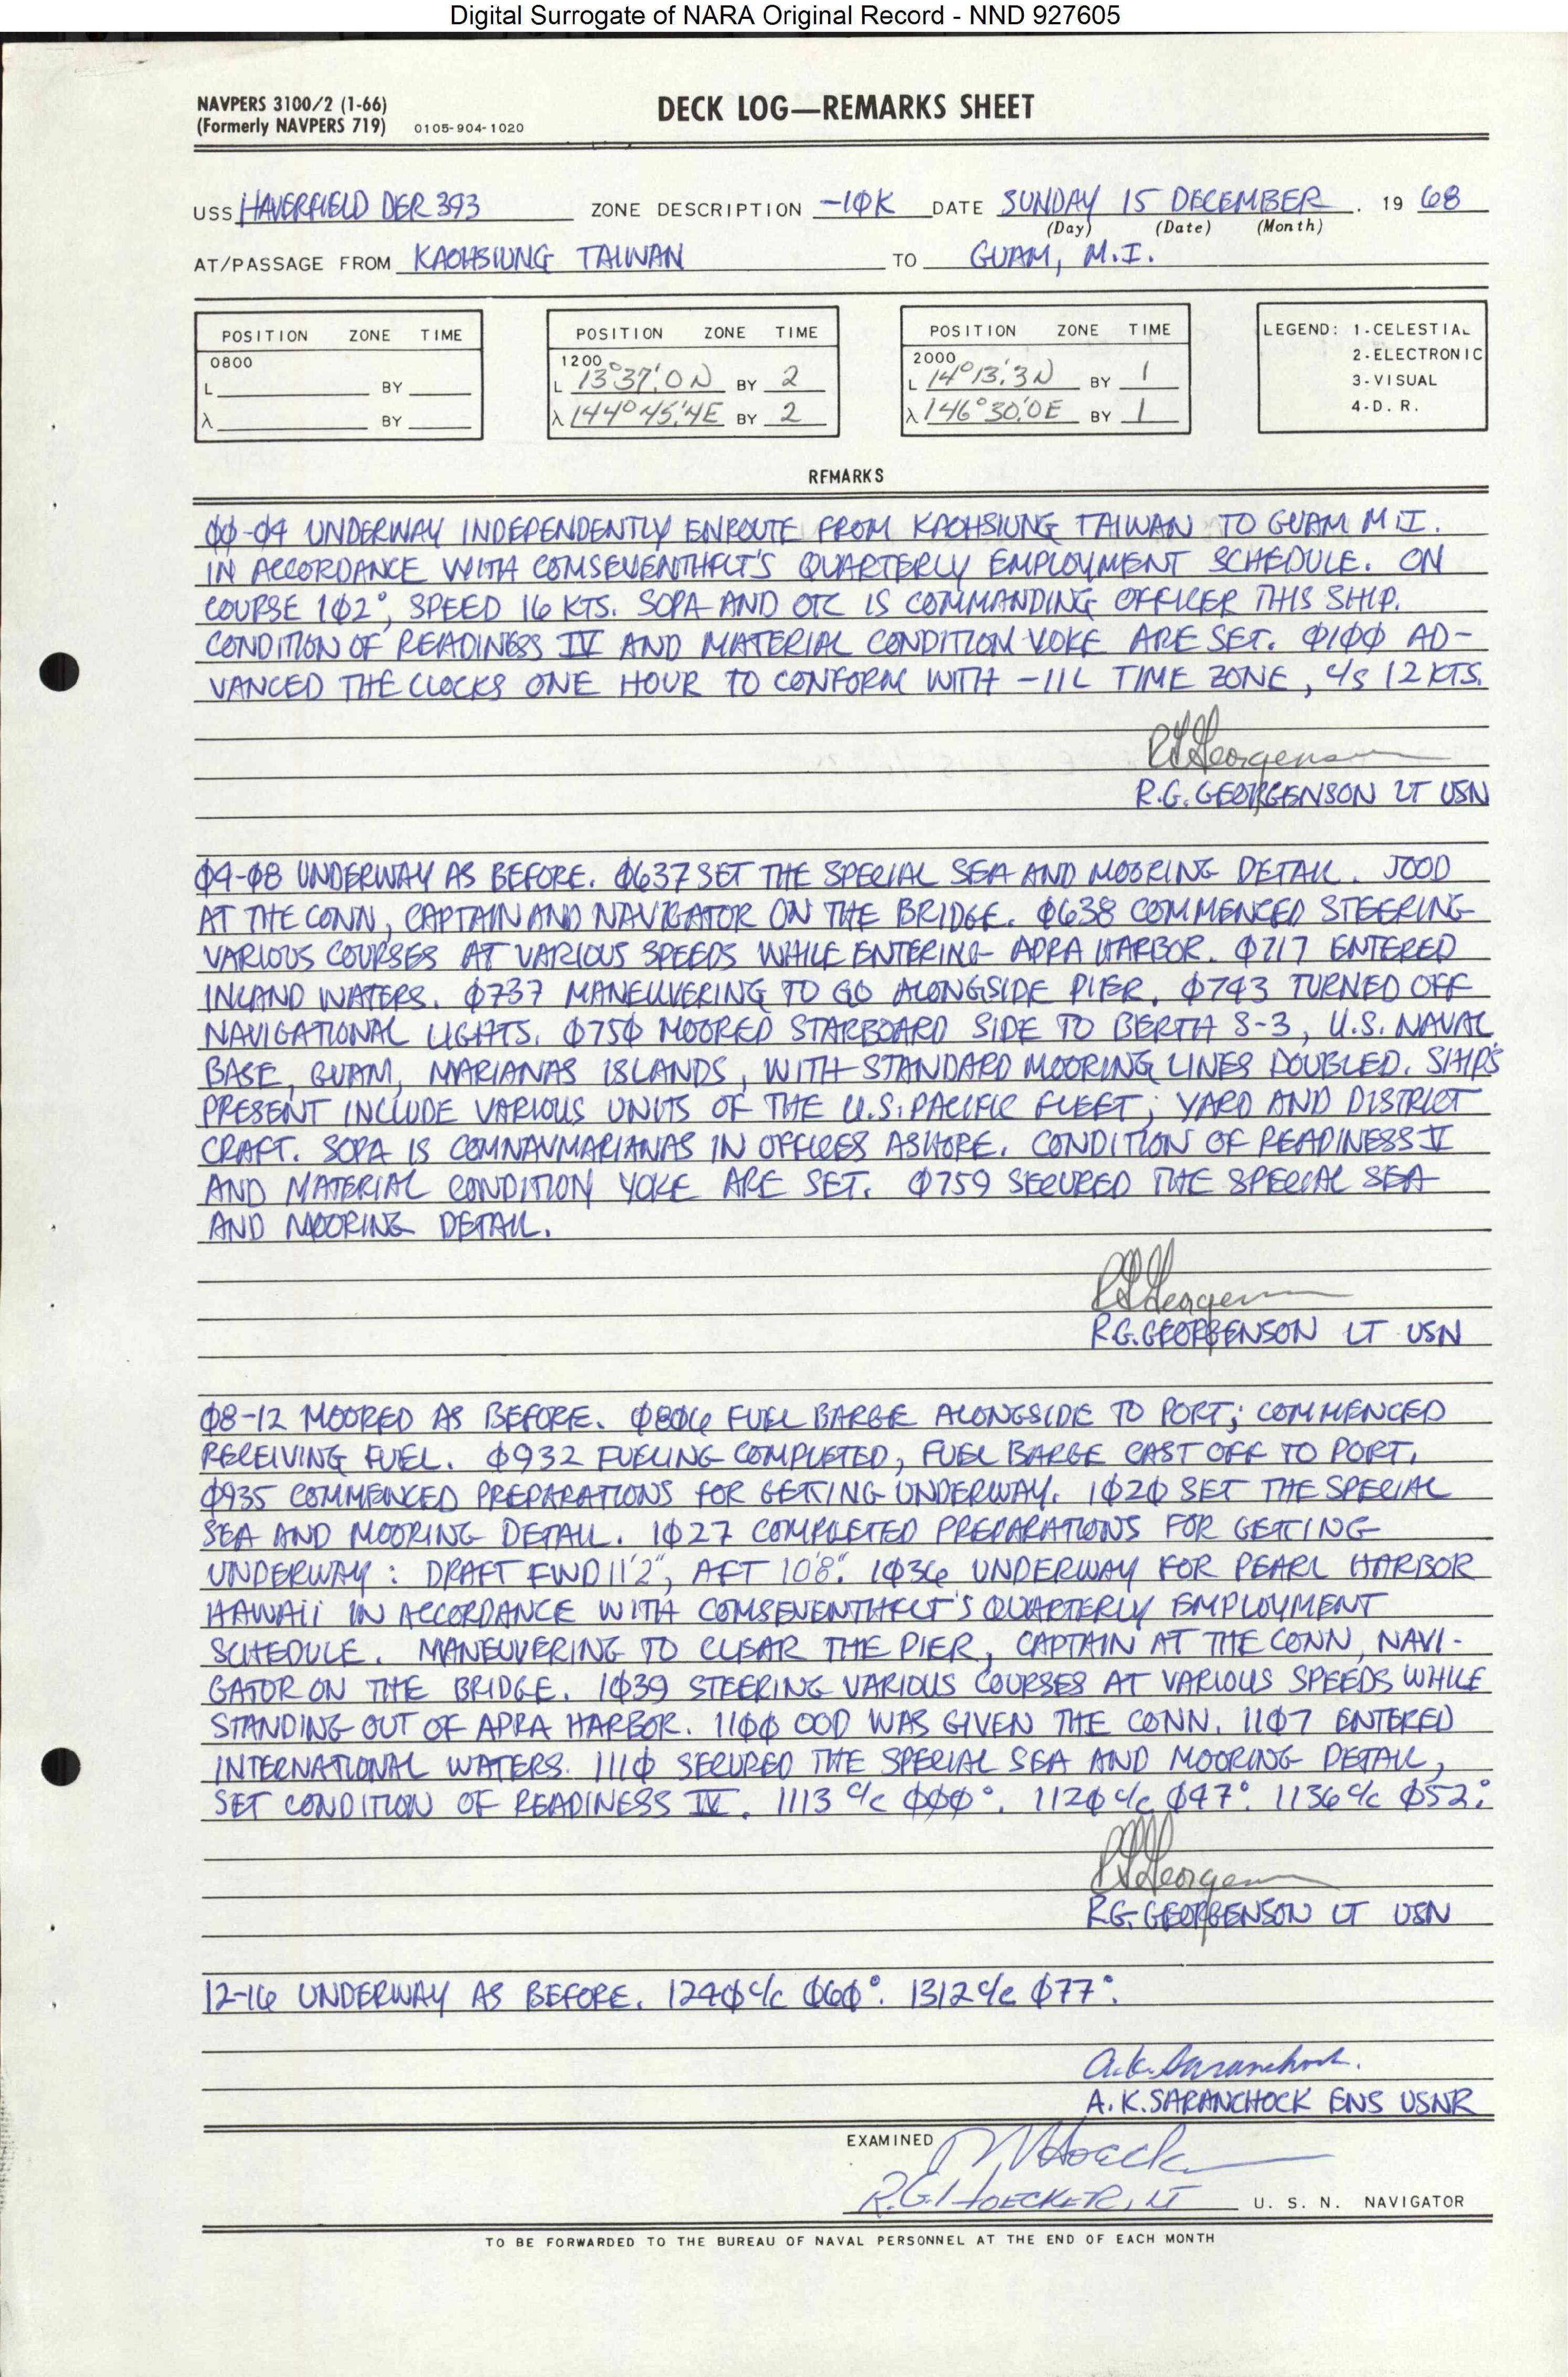 Digital Surrogate of NARA Original Record - NND 927605
NAVPERS 3100/2 (1-66)
(Formerly NAVPERS 719) 0105-904-1020
DECK LOG—REMARKS SHEET
USS HAVERFIELD DER 393 ZONE DESCRIPTION -1ØK DATE SUNDAY 15 DECEMBER . 19 68
(Day) (Date) (Month)
AT/PASSAGE FROM KAOHSIUNG TAIWAN TO GUAM, M.I.
POSITION ZONE TIME
0800
L BY
λ BY
POSITION ZONE TIME
1200
L 13°37'.0N BY 2
λ 144°45'.4E BY 2
POSITION ZONE TIME
2000
L 14°13'.3N BY 1
λ 146°30'.0E BY 1
LEGEND: 1-CELESTIAL
2-ELECTRONIC
3-VISUAL
4-D. R.
REMARKS
ØØ-Ø4 UNDERWAY INDEPENDENTLY ENROUTE FROM KAOHSIUNG TAIWAN TO GUAM M.I.
IN ACCORDANCE WITH COMSEVENTHFLT'S QUARTERLY EMPLOYMENT SCHEDULE. ON
COURSE 1Ø2°, SPEED 16 KTS. SOPA AND OTC IS COMMANDING OFFICER THIS SHIP.
CONDITION OF READINESS IV AND MATERIAL CONDITION YOKE ARE SET. Ø1ØØ AD-
VANCED THE CLOCKS ONE HOUR TO CONFORM WITH -11L TIME ZONE, c/s 12 KTS.
R.G. GEORGENSON LT USN
Ø4-Ø8 UNDERWAY AS BEFORE. Ø637 SET THE SPECIAL SEA AND MOORING DETAIL. JOOD
AT THE CONN, CAPTAIN AND NAVIGATOR ON THE BRIDGE. Ø638 COMMENCED STEERING
VARIOUS COURSES AT VARIOUS SPEEDS WHILE ENTERING APRA HARBOR. Ø717 ENTERED
INLAND WATERS. Ø737 MANEUVERING TO GO ALONGSIDE PIER. Ø743 TURNED OFF
NAVIGATIONAL LIGHTS. Ø75Ø MOORED STARBOARD SIDE TO BERTH S-3, U.S. NAVAL
BASE, GUAM, MARIANAS ISLANDS, WITH STANDARD MOORING LINES DOUBLED. SHIPS
PRESENT INCLUDE VARIOUS UNITS OF THE U.S. PACIFIC FLEET; YARD AND DISTRICT
CRAFT. SOPA IS COMNAVMARIANAS IN OFFICES ASHORE. CONDITION OF READINESS V
AND MATERIAL CONDITION YOKE ARE SET. Ø759 SECURED THE SPECIAL SEA
AND MOORING DETAIL.
R.G. GEORGENSON LT USN
Ø8-12 MOORED AS BEFORE. Ø8Ø6 FUEL BARGE ALONGSIDE TO PORT; COMMENCED
RECEIVING FUEL. Ø932 FUELING COMPLETED, FUEL BARGE CAST OFF TO PORT.
Ø935 COMMENCED PREPARATIONS FOR GETTING UNDERWAY. 1Ø2Ø SET THE SPECIAL
SEA AND MOORING DETAIL. 1Ø27 COMPLETED PREPARATIONS FOR GETTING
UNDERWAY: DRAFT FWD 11'2", AFT 10'8". 1Ø36 UNDERWAY FOR PEARL HARBOR
HAWAII IN ACCORDANCE WITH COMSEVENTHFLT'S QUARTERLY EMPLOYMENT
SCHEDULE. MANEUVERING TO CLEAR THE PIER, CAPTAIN AT THE CONN, NAVI-
GATOR ON THE BRIDGE. 1Ø39 STEERING VARIOUS COURSES AT VARIOUS SPEEDS WHILE
STANDING OUT OF APRA HARBOR. 11ØØ OOD WAS GIVEN THE CONN. 11Ø7 ENTERED
INTERNATIONAL WATERS. 111Ø SECURED THE SPECIAL SEA AND MOORING DETAIL,
SET CONDITION OF READINESS IV. 1113 c/c ØØØ°. 112Ø c/c Ø47°. 1136 c/c Ø52°.
R.G. GEORGENSON LT USN
12-16 UNDERWAY AS BEFORE. 124Ø c/c Ø6Ø°. 1312 c/c Ø77°.
A.K. Saranchock.
A.K. SARANCHOCK ENS USNR
EXAMINED
R.G. HOECKER, LT U. S. N. NAVIGATOR
TO BE FORWARDED TO THE BUREAU OF NAVAL PERSONNEL AT THE END OF EACH MONTH